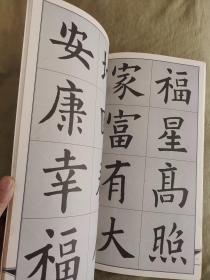 福星髙照
家富有大
安康幸福